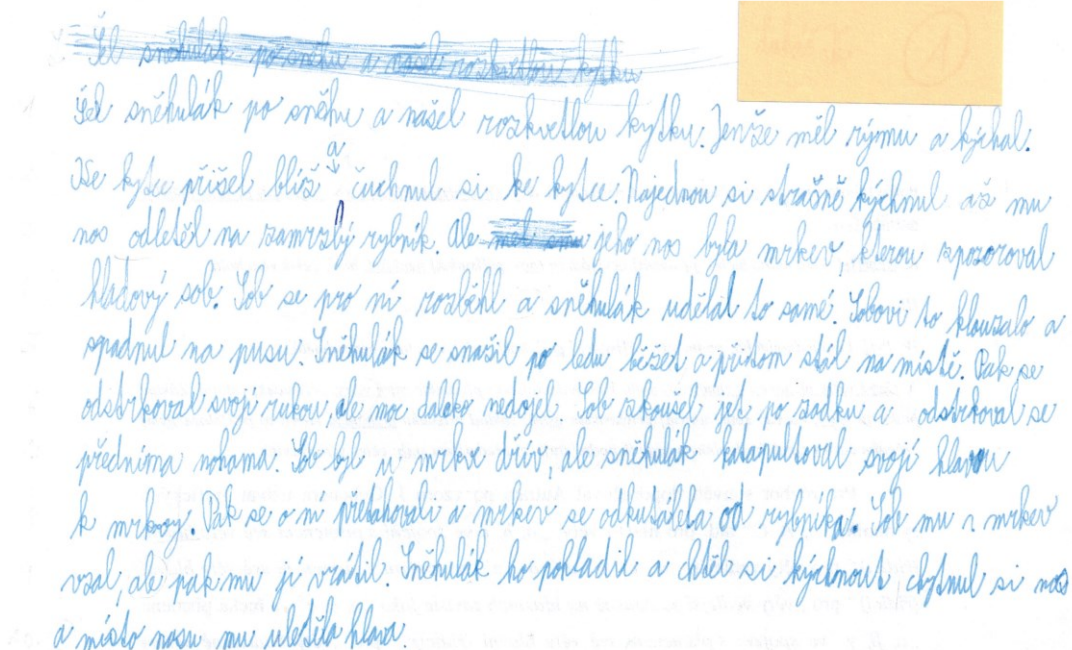 Šel sněhulák po sněhu a našel rozkvetlou kytku
Šel sněhulák po sněhu a našel rozkvetlou kytku. Jenže měl rýmu a kýchal.
Ke kytce přišel blíš a čuchnul si ke kytce. Najednou si strašně kýchnul až mu
nos odletěl na zamrzlý rybník. Ale jeho nos byla mrkev, kterou zpozoroval
hladový sob. Sob se pro ní rozběhl a sněhulák udělal to samé. Sobovi to klouzalo a
spadnul na pusu. Sněhulák se snažil po ledu běžet a přitom stál na místě. Pak se
odstrkoval svojí rukou, ale moc daleko nedojel. Sob zkoušel jet po zadku a odstrkoval se
předníma nohama. Sob byl u mrkve dřív, ale sněhulák katapultoval svojí hlavou
k mrkvy. Pak se o ni přetahovali a mrkev se odkutálela od rybníka. Sob mu mrkev
vzal, ale pak mu jí vrátil. Sněhulák ho pohladil a chtěl si kýchnout, chytnul si nos
a místo nosu mu uletěla hlava.